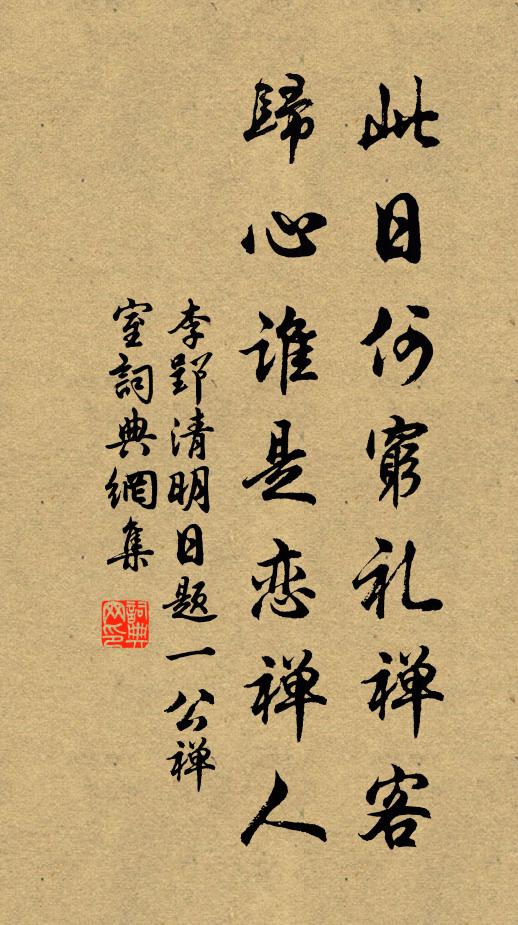 此日何窮礼禅客
歸心谁是恋禅人
李郢清明日题一公禅
室詞典網集
詞典
网印